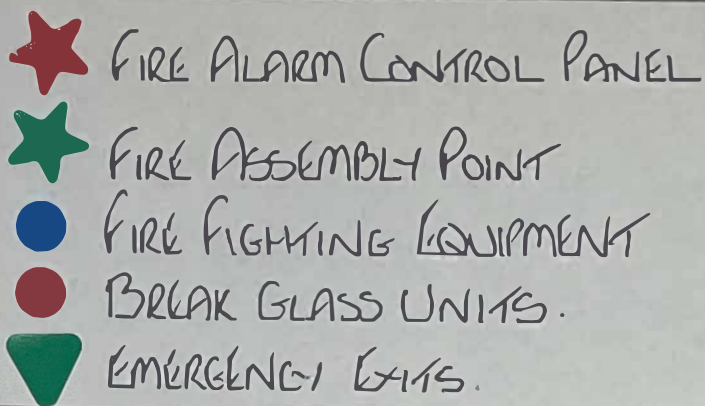 FIRE ALARM CONTROL PANEL
FIRE ASSEMBLY POINT
FIRE FIGHTING EQUIPMENT
BREAK GLASS UNITS.
EMERGENCY EXITS.